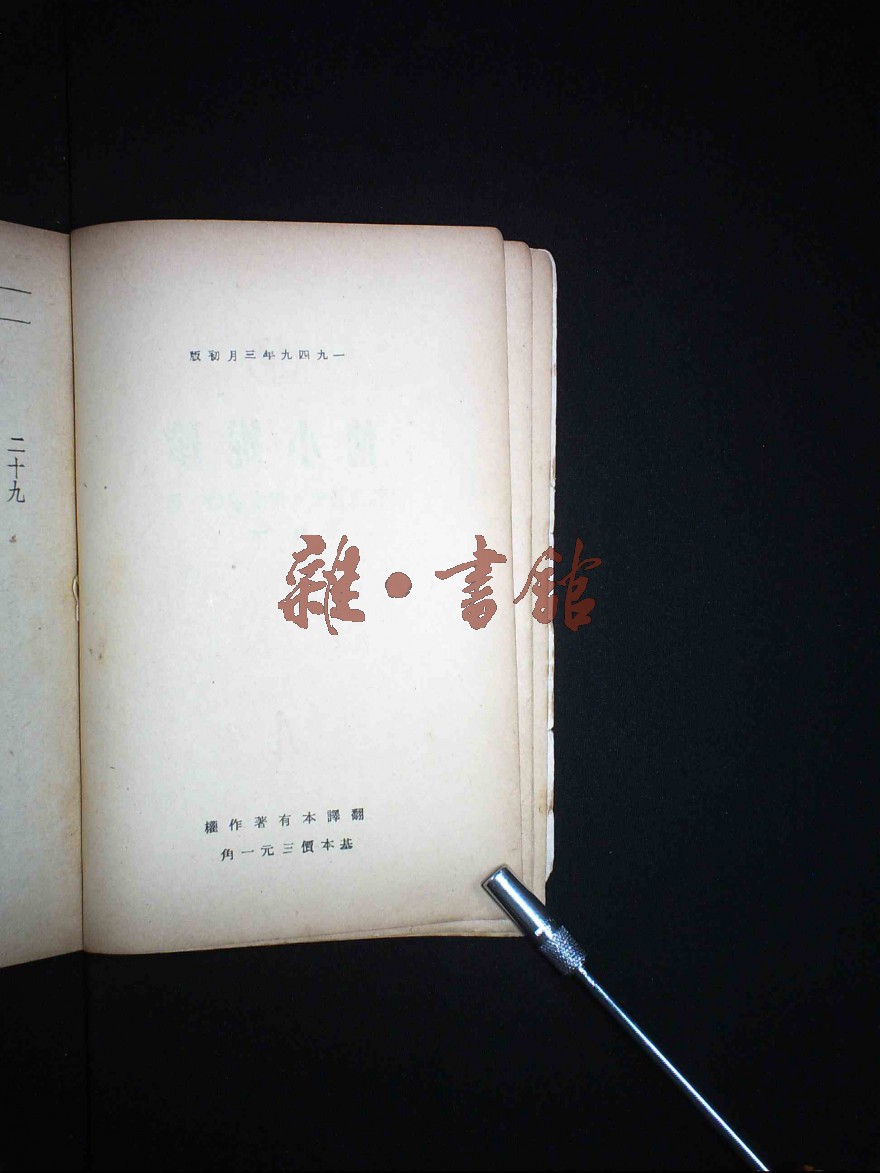 一九四九年三月初版
二十九
雜·書館
翻譯本有著作權
基本價三元一角